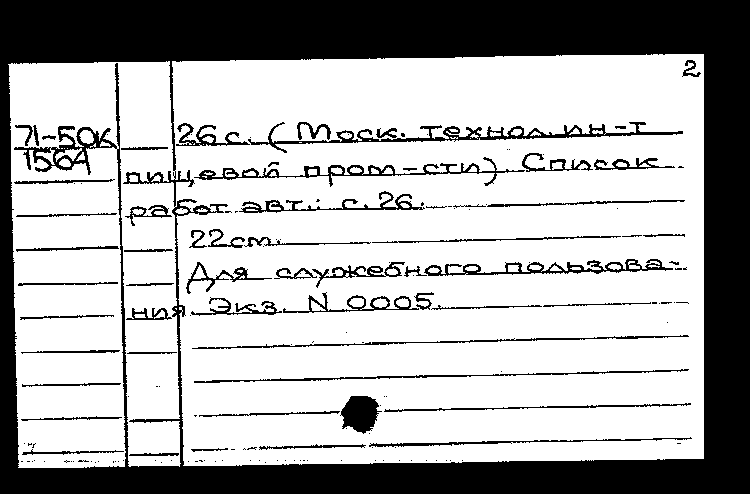 2
71-50К 26 с. (Моск. технол. ин-т
1564 пищевой пром-сти). Список
работ авт.: с. 26.
22 см.
Для служебного пользова-
ния. Экз. N 0005.